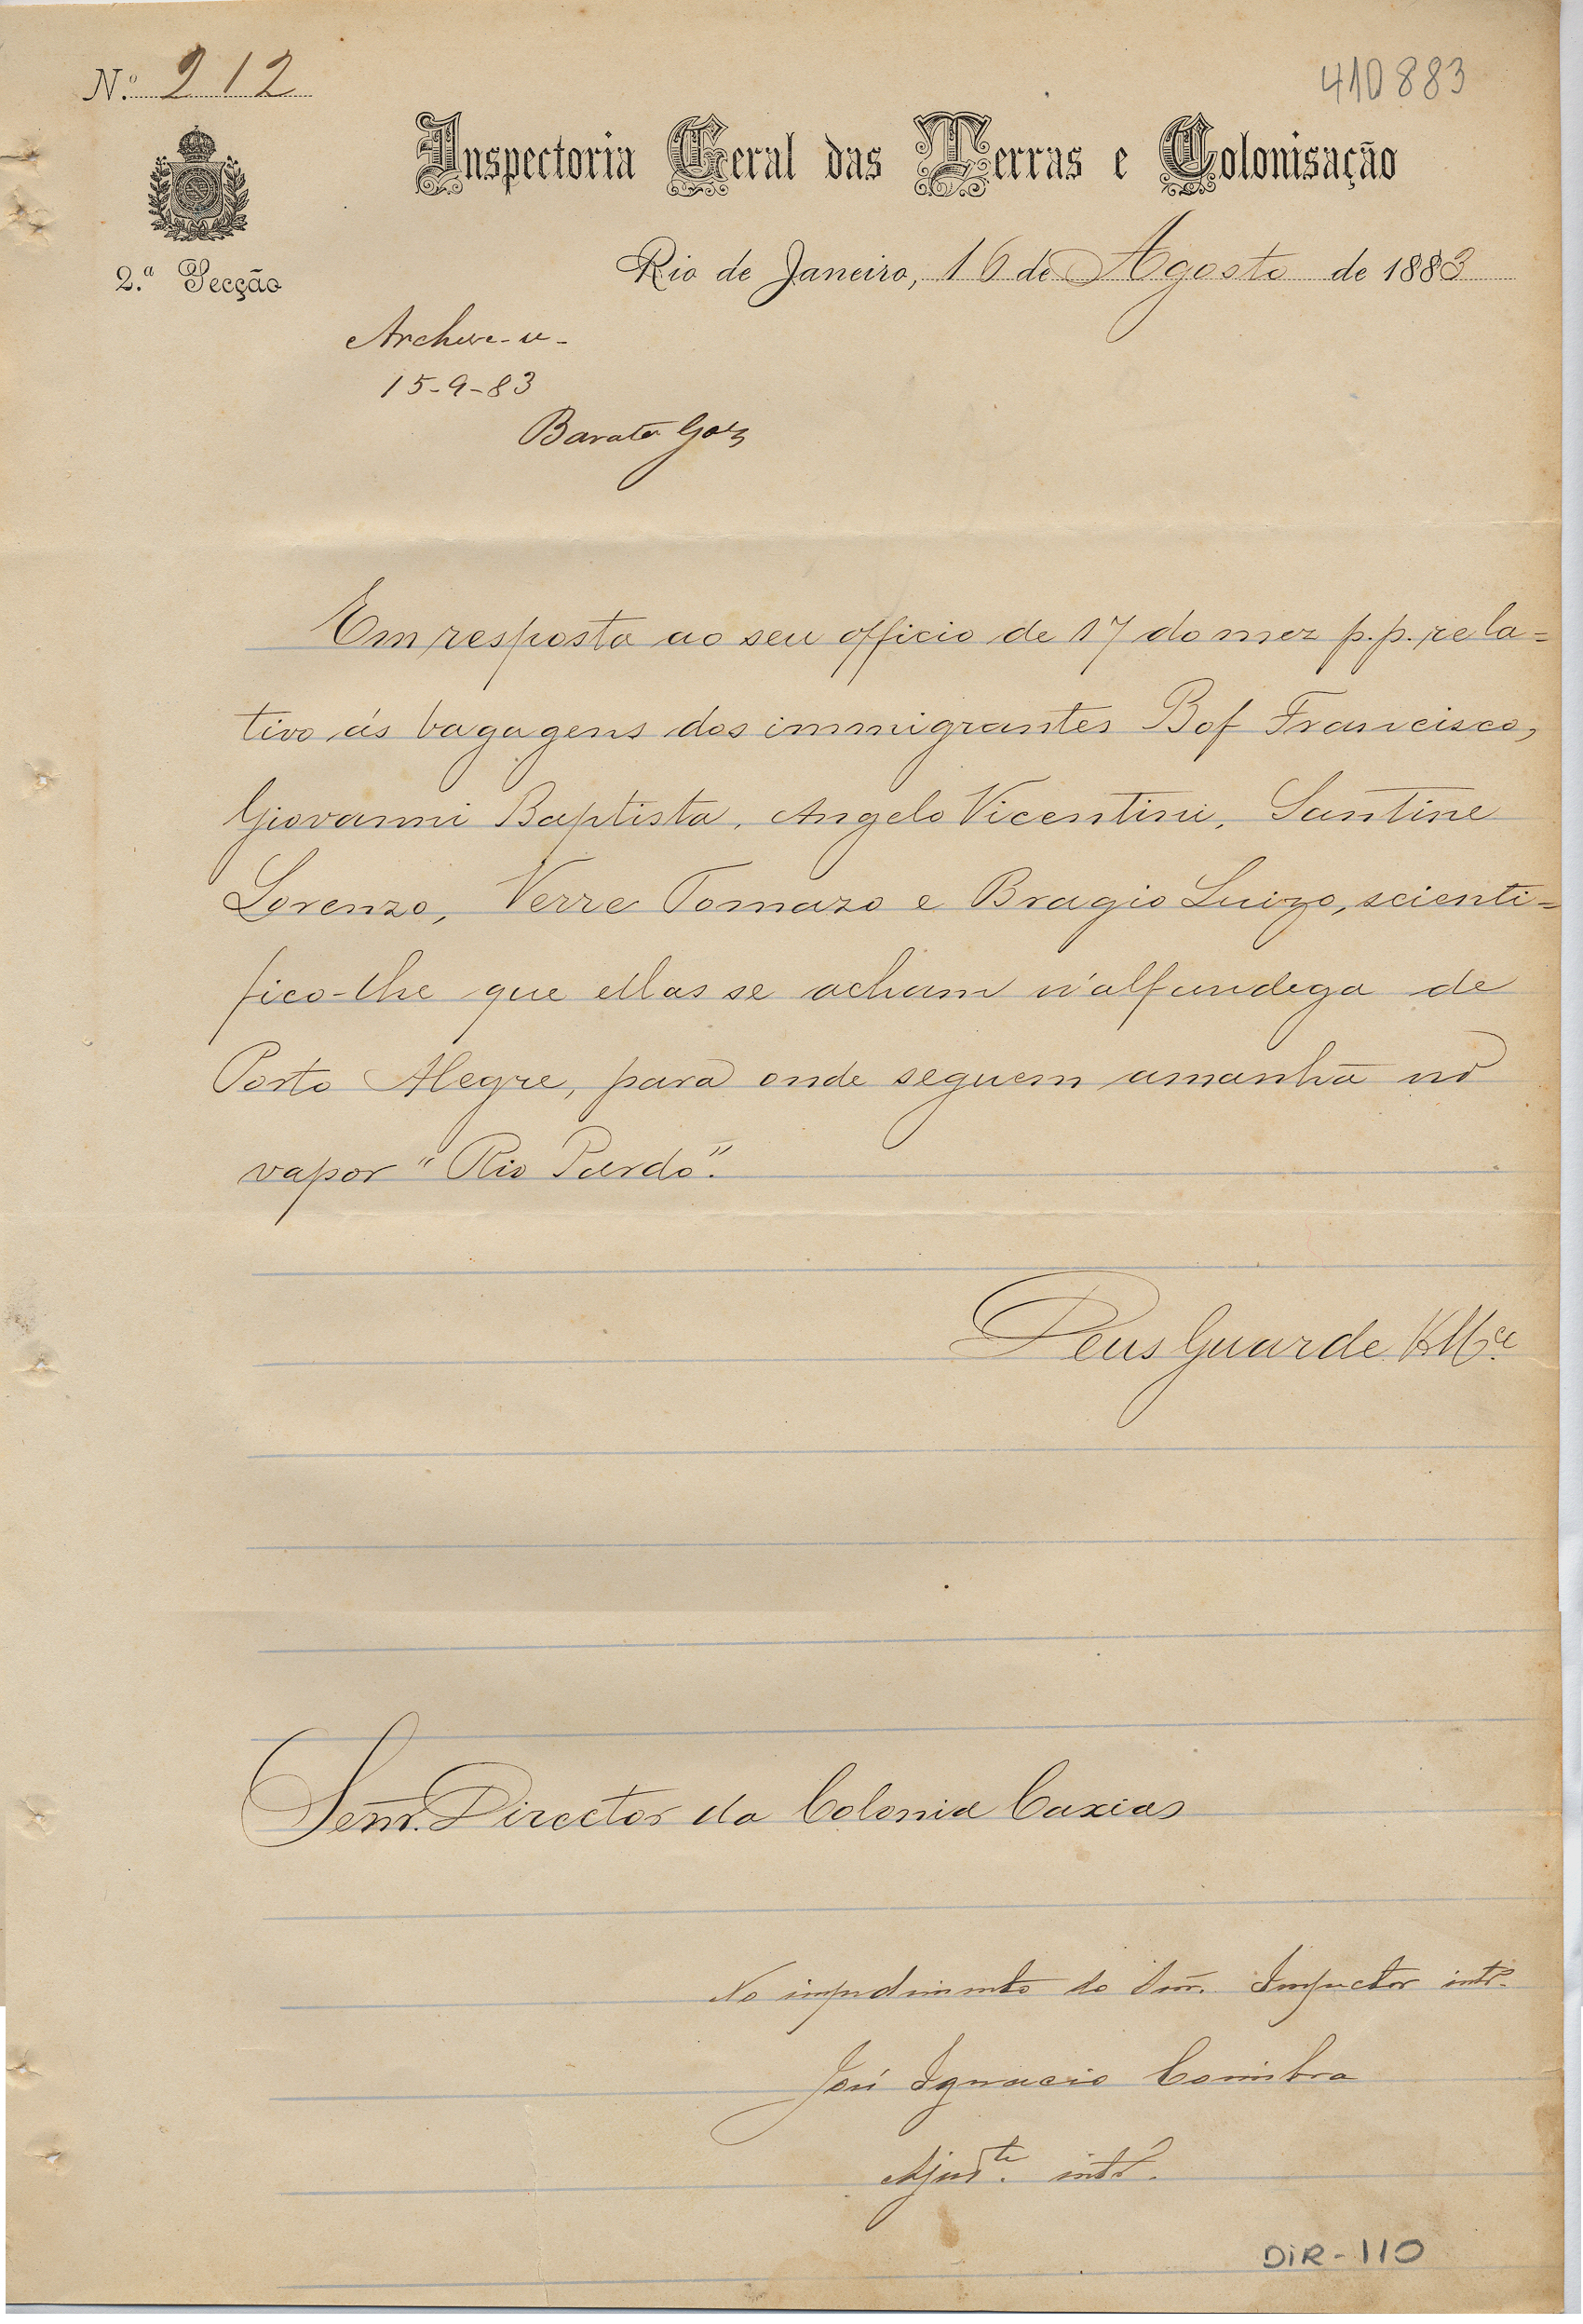 N.º 212
410883
Inspectoria Geral das Terras e Colonisação
2.ª Secção
Rio de Janeiro, 16 de Agosto de 1883
Archive-se-
15-9-83
Barata Goes
Em resposta ao seu officio de 17 do mez p.p. rela=
tivo ás bagagens dos immigrantes Bof Francisco,
Giovanni Baptista, Angelo Vicentini, Santine
Lorenzo, Verre Tomazo e Bragio Luizo, scienti=
fico-lhe que ellas se acham n'alfandega de
Porto Alegre, para onde seguem amanhã no
vapor "Rio Pardo".
Deus Guarde VMce
Senr. Director da Colonia Caxias
No impedimento do Snr. Inspector intº.
José Ignacio Coimbra
Ajudte. intº.
DIR-110